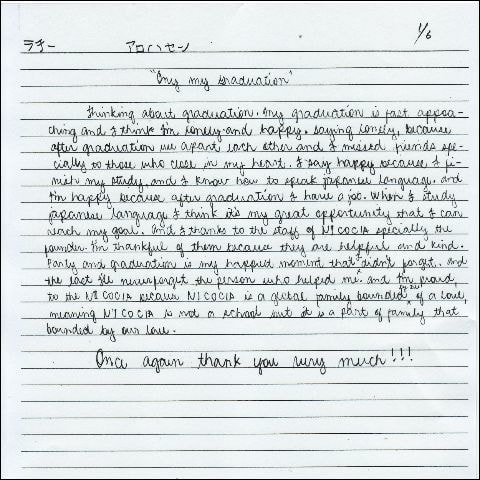 1/6
ラチー アロハセン
"Ony my Graduation"
Thinking about graduation. My graduation is fast appoa-
ching and I think I'm lonely and happy. Saying lonely, because
after graduation we apart each other and I missed friends spe-
cially to those who close in my heart. I say happy because I fi-
nish my study, and I know how to speak japanese language. and
I'm happy because after graduation I have a job. When I study
japanese language I think it's my great opportunity that I can
reach my goal. And I thanks to the staff of NICOCIA specially the
founder. I'm thankful of them because they are helpful and kind.
Party and graduation is my happest moment that I didn't forget. And
the last I'll neverforget the person who helped me. and I'm proud
to the NICOCIA because NICOCIA is a global family bounded of a love,
meaning NICOCIA is not a school but it is a part of family that
bounded by our love.
Once again thank you very much!!!